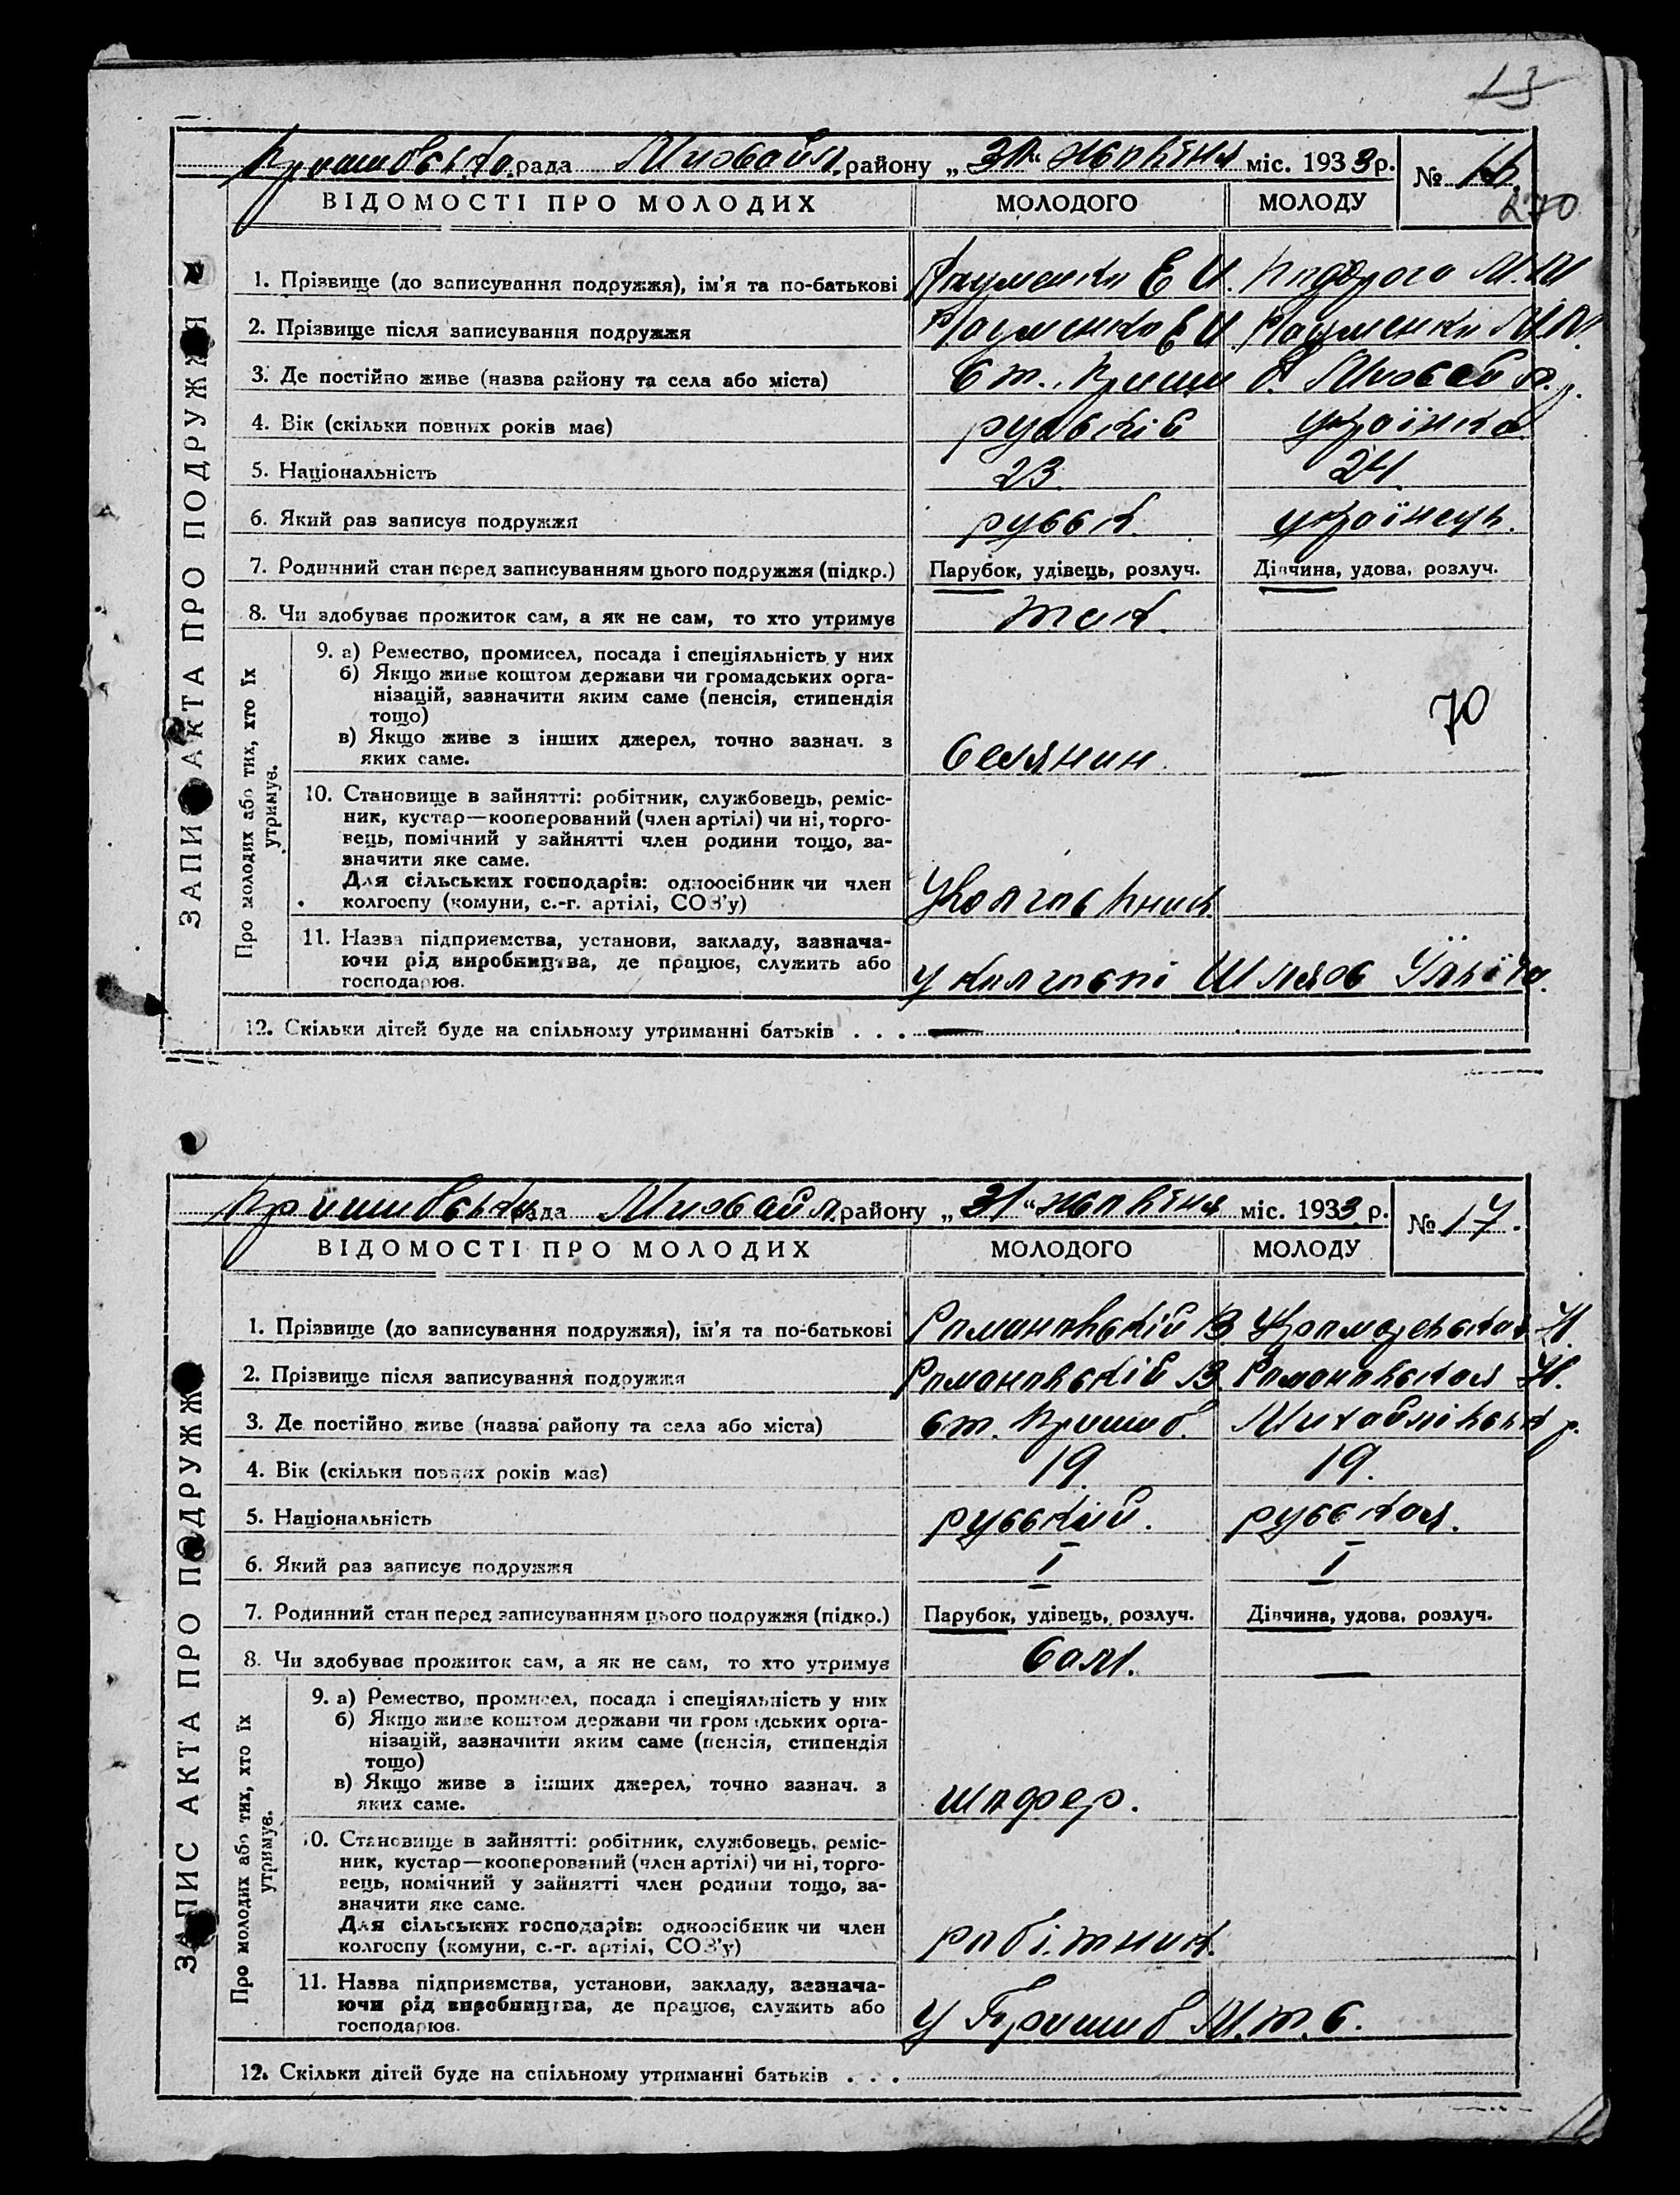 13
рада району „31“ жовтня міс. 1933 р. № 16.
270
ВІДОМОСТІ ПРО МОЛОДИХ МОЛОДОГО МОЛОДУ
ЗАПИС АКТА ПРО ПОДРУЖЖЯ
1. Прізвище (до записування подружжя), ім'я та по-батькові Науменко Е И.
2. Прізвище після записування подружжя Науменко Е И. Науменко
3. Де постійно живе (назва району та села або міста) ст.
4. Вік (скільки повних років має) українка
5. Національність 23. 24.
6. Який раз записує подружжя русск. українець.
7. Родинний стан перед записуванням цього подружжя (підкр.) Парубок, удівець, розлуч. Дівчина, удова, розлуч.
8. Чи здобуває прожиток сам, а як не сам, то хто утримує так.
Про молодих або тих, хто їх утримує.
9. а) Ремество, промисел, посада і спеціяльність у них
б) Якщо живе коштом держави чи громадських орга-
нізацій, зазначити яким саме (пенсія, стипендія
тощо)
70
в) Якщо живе з інших джерел, точно зазнач. з
яких саме. селянин
10. Становище в зайнятті: робітник, службовець, реміс-
ник, кустар—кооперований (член артілі) чи ні, торго-
вець, помічний у зайнятті член родини тощо, за-
значити яке саме.
Для сільських господарів: одноосібник чи член
колгоспу (комуни, с.-г. артілі, СОЗ'у)
11. Назва підприємства, установи, закладу, зазнача-
ючи рід виробництва, де працює, служить або
господарює. у колгоспі Шлях Ілліча.
12. Скільки дітей буде на спільному утриманні батьків . . . —
рада району „31“ жовтня міс. 1933 р. № 17.
ВІДОМОСТІ ПРО МОЛОДИХ МОЛОДОГО МОЛОДУ
ЗАПИС АКТА ПРО ПОДРУЖЖЯ
1. Прізвище (до записування подружжя), ім'я та по-батькові Романовскій В
2. Прізвище після записування подружжя Романовскій В. Романовская Н.
3. Де постійно живе (назва району та села або міста) ст. Пришиб. Михайлівськ р.
4. Вік (скільки повних років має) 19 19.
5. Національність русский. русская.
6. Який раз записує подружжя I I
7. Родинний стан перед записуванням цього подружжя (підкр.) Парубок, удівець, розлуч. Дівчина, удова, розлуч.
8. Чи здобуває прожиток сам, а як не сам, то хто утримує сам. —
Про молодих або тих, хто їх утримує.
9. а) Ремество, промисел, посада і спеціяльність у них
б) Якщо живе коштом держави чи громадських орга-
нізацій, зазначити яким саме (пенсія, стипендія
тощо)
в) Якщо живе з інших джерел, точно зазнач. з
яких саме. шофер.
10. Становище в зайнятті: робітник, службовець, реміс-
ник, кустар—кооперований (член артілі) чи ні, торго-
вець, помічний у зайнятті член родини тощо, за-
значити яке саме.
Для сільських господарів: одноосібник чи член
колгоспу (комуни, с.-г. артілі, СОЗ'у) робітник.
11. Назва підприємства, установи, закладу, зазнача-
ючи рід виробництва, де працює, служить або
господарює. у Пришиб М.т.с.
12. Скільки дітей буде на спільному утриманні батьків . . .